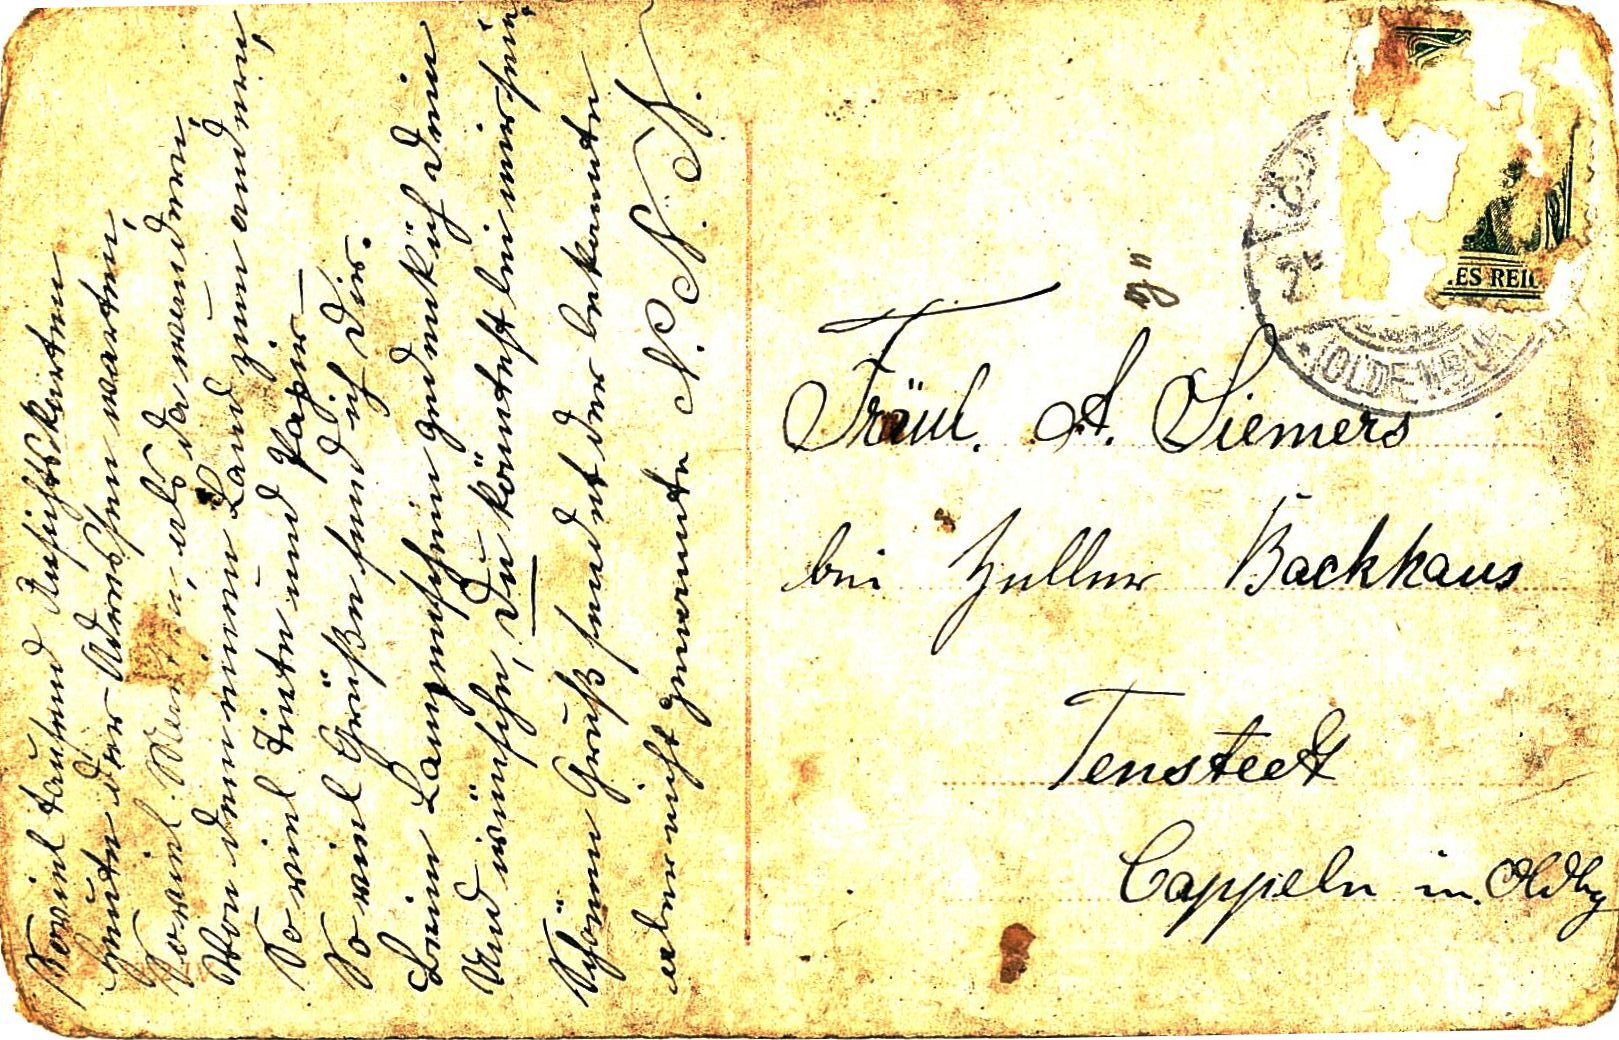 Soviel tausend Ansichtskarten
Heute der Adressen warten,
Soviel als da wandern,
Von dem einen Land zum andern,
So viel Tinte und Papier –
So viel Grüße send ich Dir.
Beim Lampenschein gedenk ich Dein
Und wünsche, Du könntest bei mir sein.
Schönen Gruß sendet der bekannte
aber nicht genannte N. N. N.
Fräul. A. Siemers
bei Zeller Backhaus
Tenstedt
Cappeln in Oldbg
OLDENBUR
ES REIC